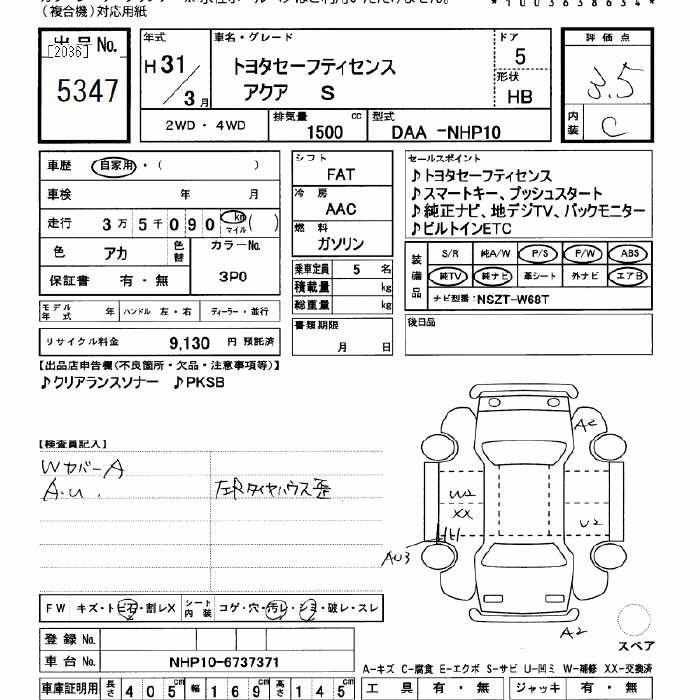 （複合機）対応用紙
*1003638634*
出品No.
[2036]
5347
年式
H 31 / 3月
車名・グレード
トヨタセーフティセンス
アクア S
ドア
5
形状
HB
2WD・4WD
排気量 1500 cc
型式 DAA -NHP10
評価点
3.5
内装 C
車歴 自家用・( )
車検 年 月
走行 3万5千090 km マイル ( )
色 アカ 色替 カラーNo. 3P0
保証書 有・無
モデル年式 年 ハンドル 左・右 ディーラー・並行
リサイクル料金 9,130 円 預託済
シフト
FAT
冷房
AAC
燃料
ガソリン
乗車定員 5 名
積載量 kg
総重量 kg
書類期限
月 日
セールスポイント
♪トヨタセーフティセンス
♪スマートキー、プッシュスタート
♪純正ナビ、地デジTV、バックモニター
♪ビルトインETC
装備品
S/R 純A/W P/S P/W ABS
純TV 純ナビ 革シート 外ナビ エアB
ナビ型番：NSZT-W68T
後日品
【出品店申告欄(不良箇所・欠品・注意事項等)】
♪クリアランスソナー ♪PKSB
【検査員記入】
WカバーA
A.U.
左Rタイヤハウス歪
A2
W2
XX
U2
AU3
A2
スペア
FW キズ・トビ石・割レX シート内装 コゲ・穴・汚レ・シミ・破レ・スレ
登録No.
車台No. NHP10-6737371
A-キズ C-腐食 E-エクボ S-サビ U-凹ミ W-補修 XX-交換済
車庫証明用 長さ 405cm 幅 169cm 高さ 145cm
工具 有・無 ジャッキ 有・無